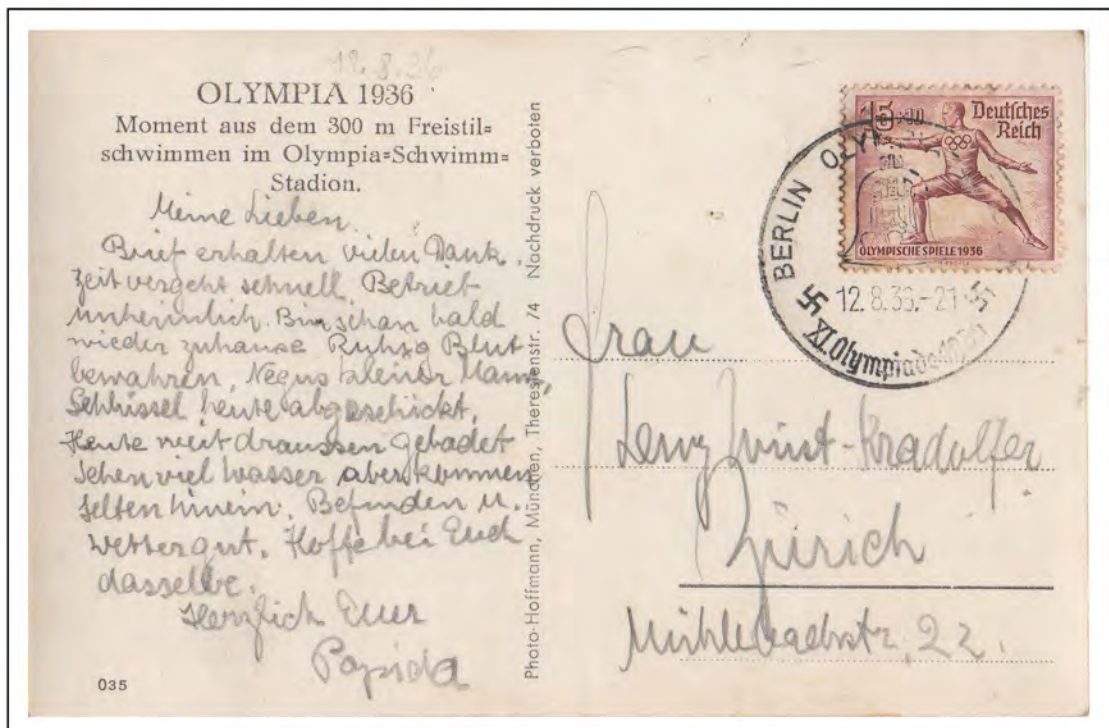 12.8.36
OLYMPIA 1936
Moment aus dem 300 m Freistil=
schwimmen im Olympia=Schwimm=
Stadion.
Meine Lieben
Brief erhalten vielen Dank.
Zeit vergeht schnell. Betrieb
unheimlich. Bin schon bald
wieder zuhause Ruhig Blut
bewahren, Negus kleiner Mann,
Schlüssel heute abgeschickt.
Heute weit draussen gebadet
sehen viel Wasser aber kommen
selten hinein. Befinden u.
Wetter gut. Hoffe bei Euch
dasselbe.
Herzlich Euer
035
Photo-Hoffmann, München, Theresienstr. 74 Nachdruck verboten
15+10
Deutsches
Reich
OLYMPISCHE SPIELE 1936
BERLIN OLYM
12.8.36.-21
XI. Olympiade 1936
Frau
Wüst-Kradolfer
Zürich
Mühlebachstr. 22.